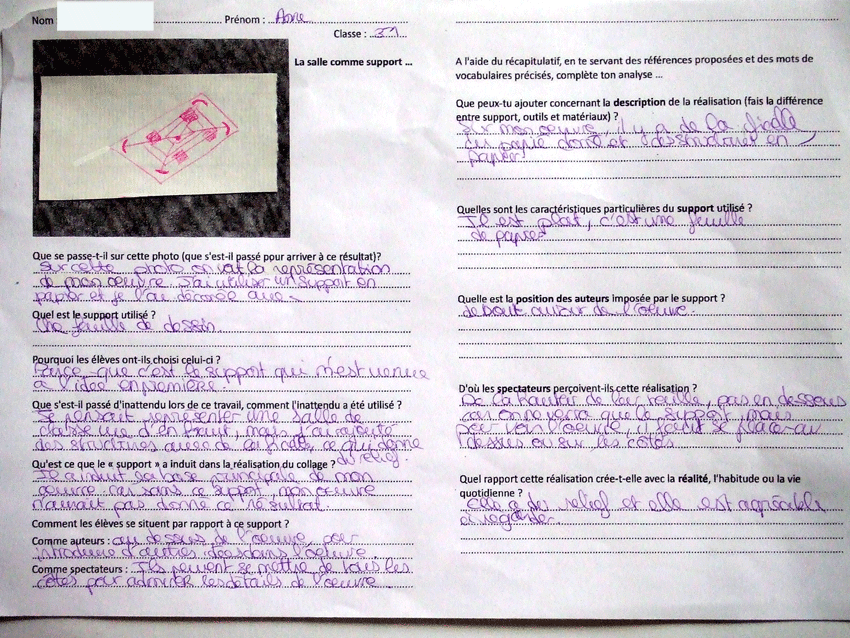 Nom ........ Prénom : Anne
Classe : 31
La salle comme support ...
Que se passe-t-il sur cette photo (que s'est-il passé pour arriver à ce résultat)?
Sur cette photo on voit la représentation
de mon oeuvre. J'ai utiliser un support en
papier et je l'ai décorée avec
Quel est le support utilisé ?
Une feuille de dessin.
Pourquoi les élèves ont-ils choisi celui-ci ?
Parce-que c'est le support qui m'est venue
à l'idée en première.
Que s'est-il passé d'inattendu lors de ce travail, comment l'inattendu a été utilisé ?
Je pensait représenter une salle de
classe vue d'en haut, mais j'ai rajouté
des structures avec de la ficelle, ce qui donne
du relief.
Qu'est ce que le « support » a induit dans la réalisation du collage ?
Il a induit la base principale de mon
oeuvre car sans ce support, mon oeuvre
n'aurait pas donné ce résultat.
Comment les élèves se situent par rapport à ce support ?
Comme auteurs : au dessus de l'oeuvre, pour
introduire d'autres idées dans l'oeuvre.
Comme spectateurs : Ils peuvent se mettre de tous les
côtés pour admirer les détails de l'oeuvre.
A l'aide du récapitulatif, en te servant des références proposées et des mots de
vocabulaires précisés, complète ton analyse ...
Que peux-tu ajouter concernant la description de la réalisation (fais la différence
entre support, outils et matériaux) ?
Sur mon oeuvre, il y a de la ficelle,
du papier doré et des structures en
papier.
Quelles sont les caractéristiques particulières du support utilisé ?
Il est plat, c'est une feuille
de papier
Quelle est la position des auteurs imposée par le support ?
debout autour de l'oeuvre.
D'où les spectateurs perçoivent-ils cette réalisation ?
De la hauteur de leur taille, pas en dessous
car on ne verra que le support, mais
pour voir l'oeuvre, il faut se placer au
dessus ou sur les côtés.
Quel rapport cette réalisation crée-t-elle avec la réalité, l'habitude ou la vie
quotidienne ?
Elle a du relief et elle est agréable
à regarder.